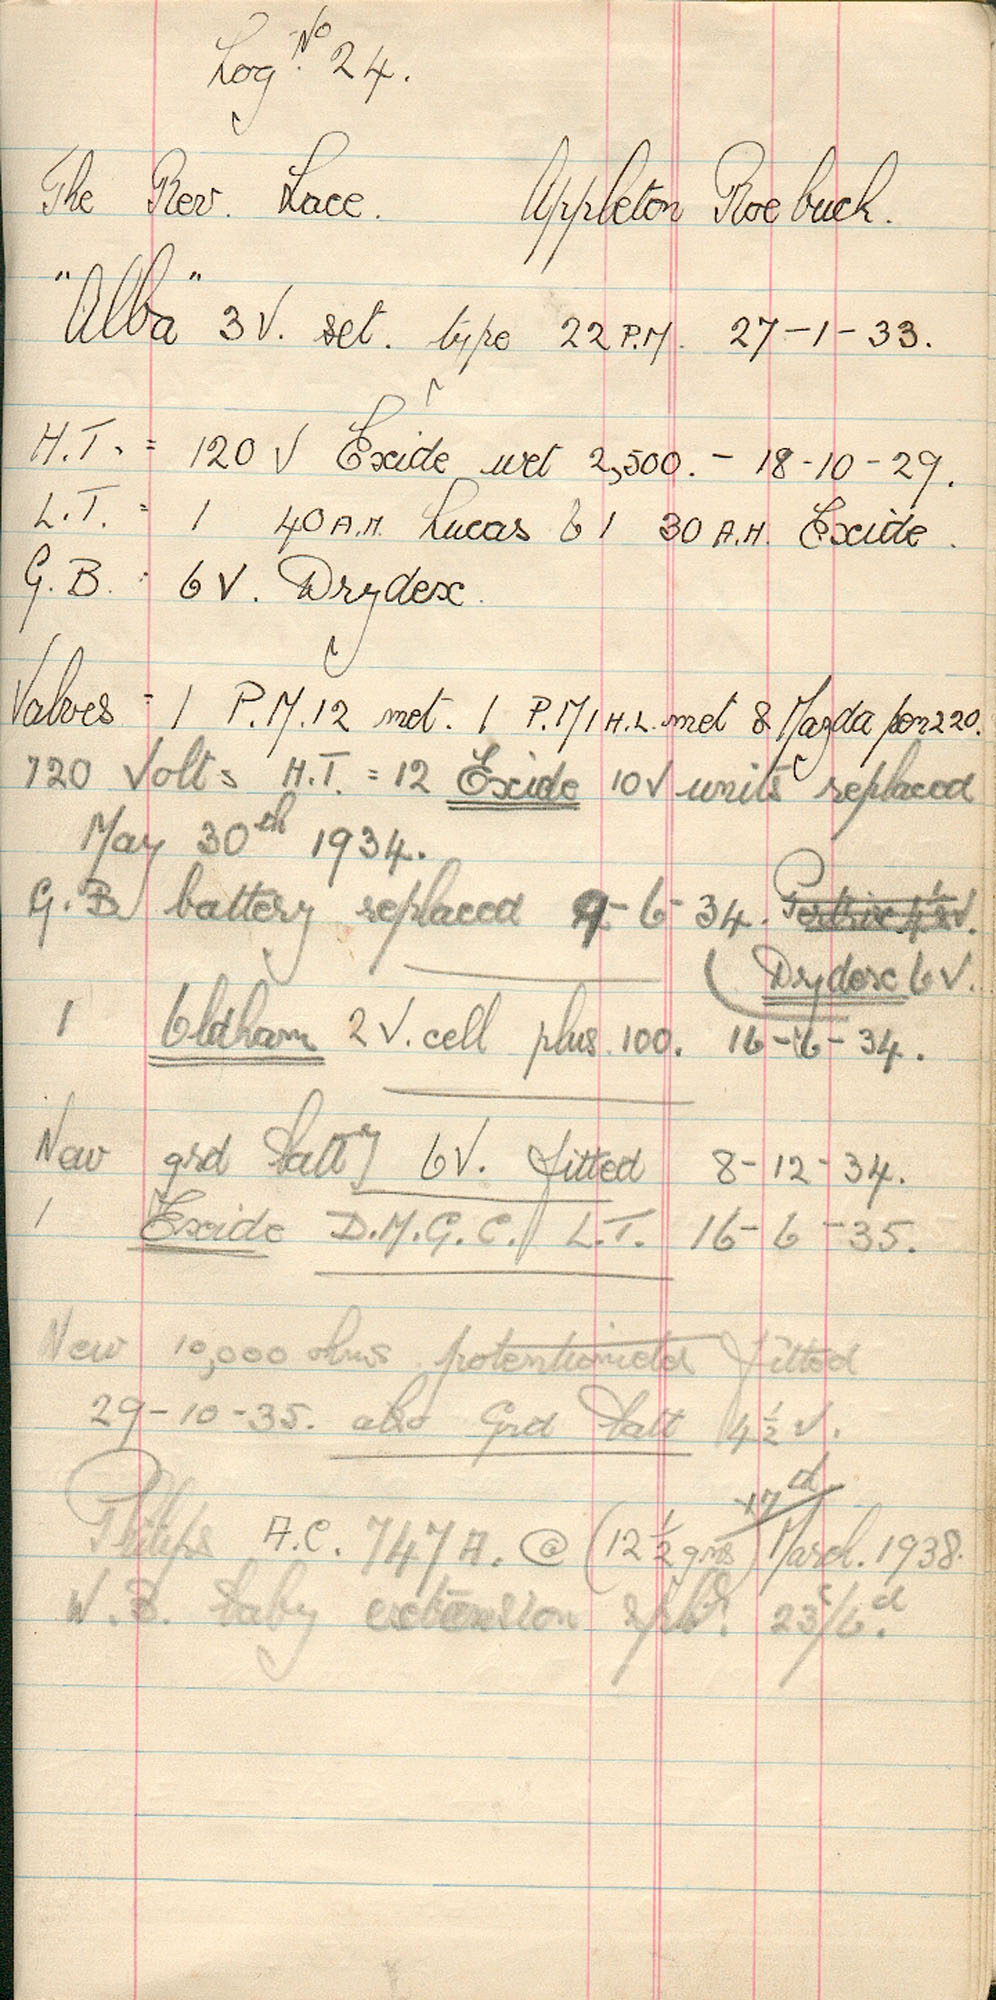 Log No 24.
The Rev. Lace. Appleton Roebuck.
"Alba" 3 V. set. type 22 P.M. 27-1-33.
H.T. = 120 V Exide wet 2,500. - 18-10-29.
L.T. = 1 40 A.H. Lucas & 1 30 A.H. Exide.
G.B. = 6 V. Drydex.
Valves = 1 P.M.12 met. 1 P.M 1 H.L. met & Mazda pen 220.
120 Volts H.T. = 12 Exide 10 V units replaced
May 30th 1934.
G.B battery replaced 9-6-34. Pertrix 4½V.
Drydex 6 V.
1 Oldham 2 V. cell plus 100. 16-6-34.
New grd batty 6V. fitted 8-12-34.
1 Exide D.M.G.C. L.T. 16-6-35.
New 10,000 ohms fitted
29-10-35. also Grd batt 4½ V.
Philips A.C. 747 A. @ (12½ gns) March. 1938.
W.B. baby extension 23s/6d.